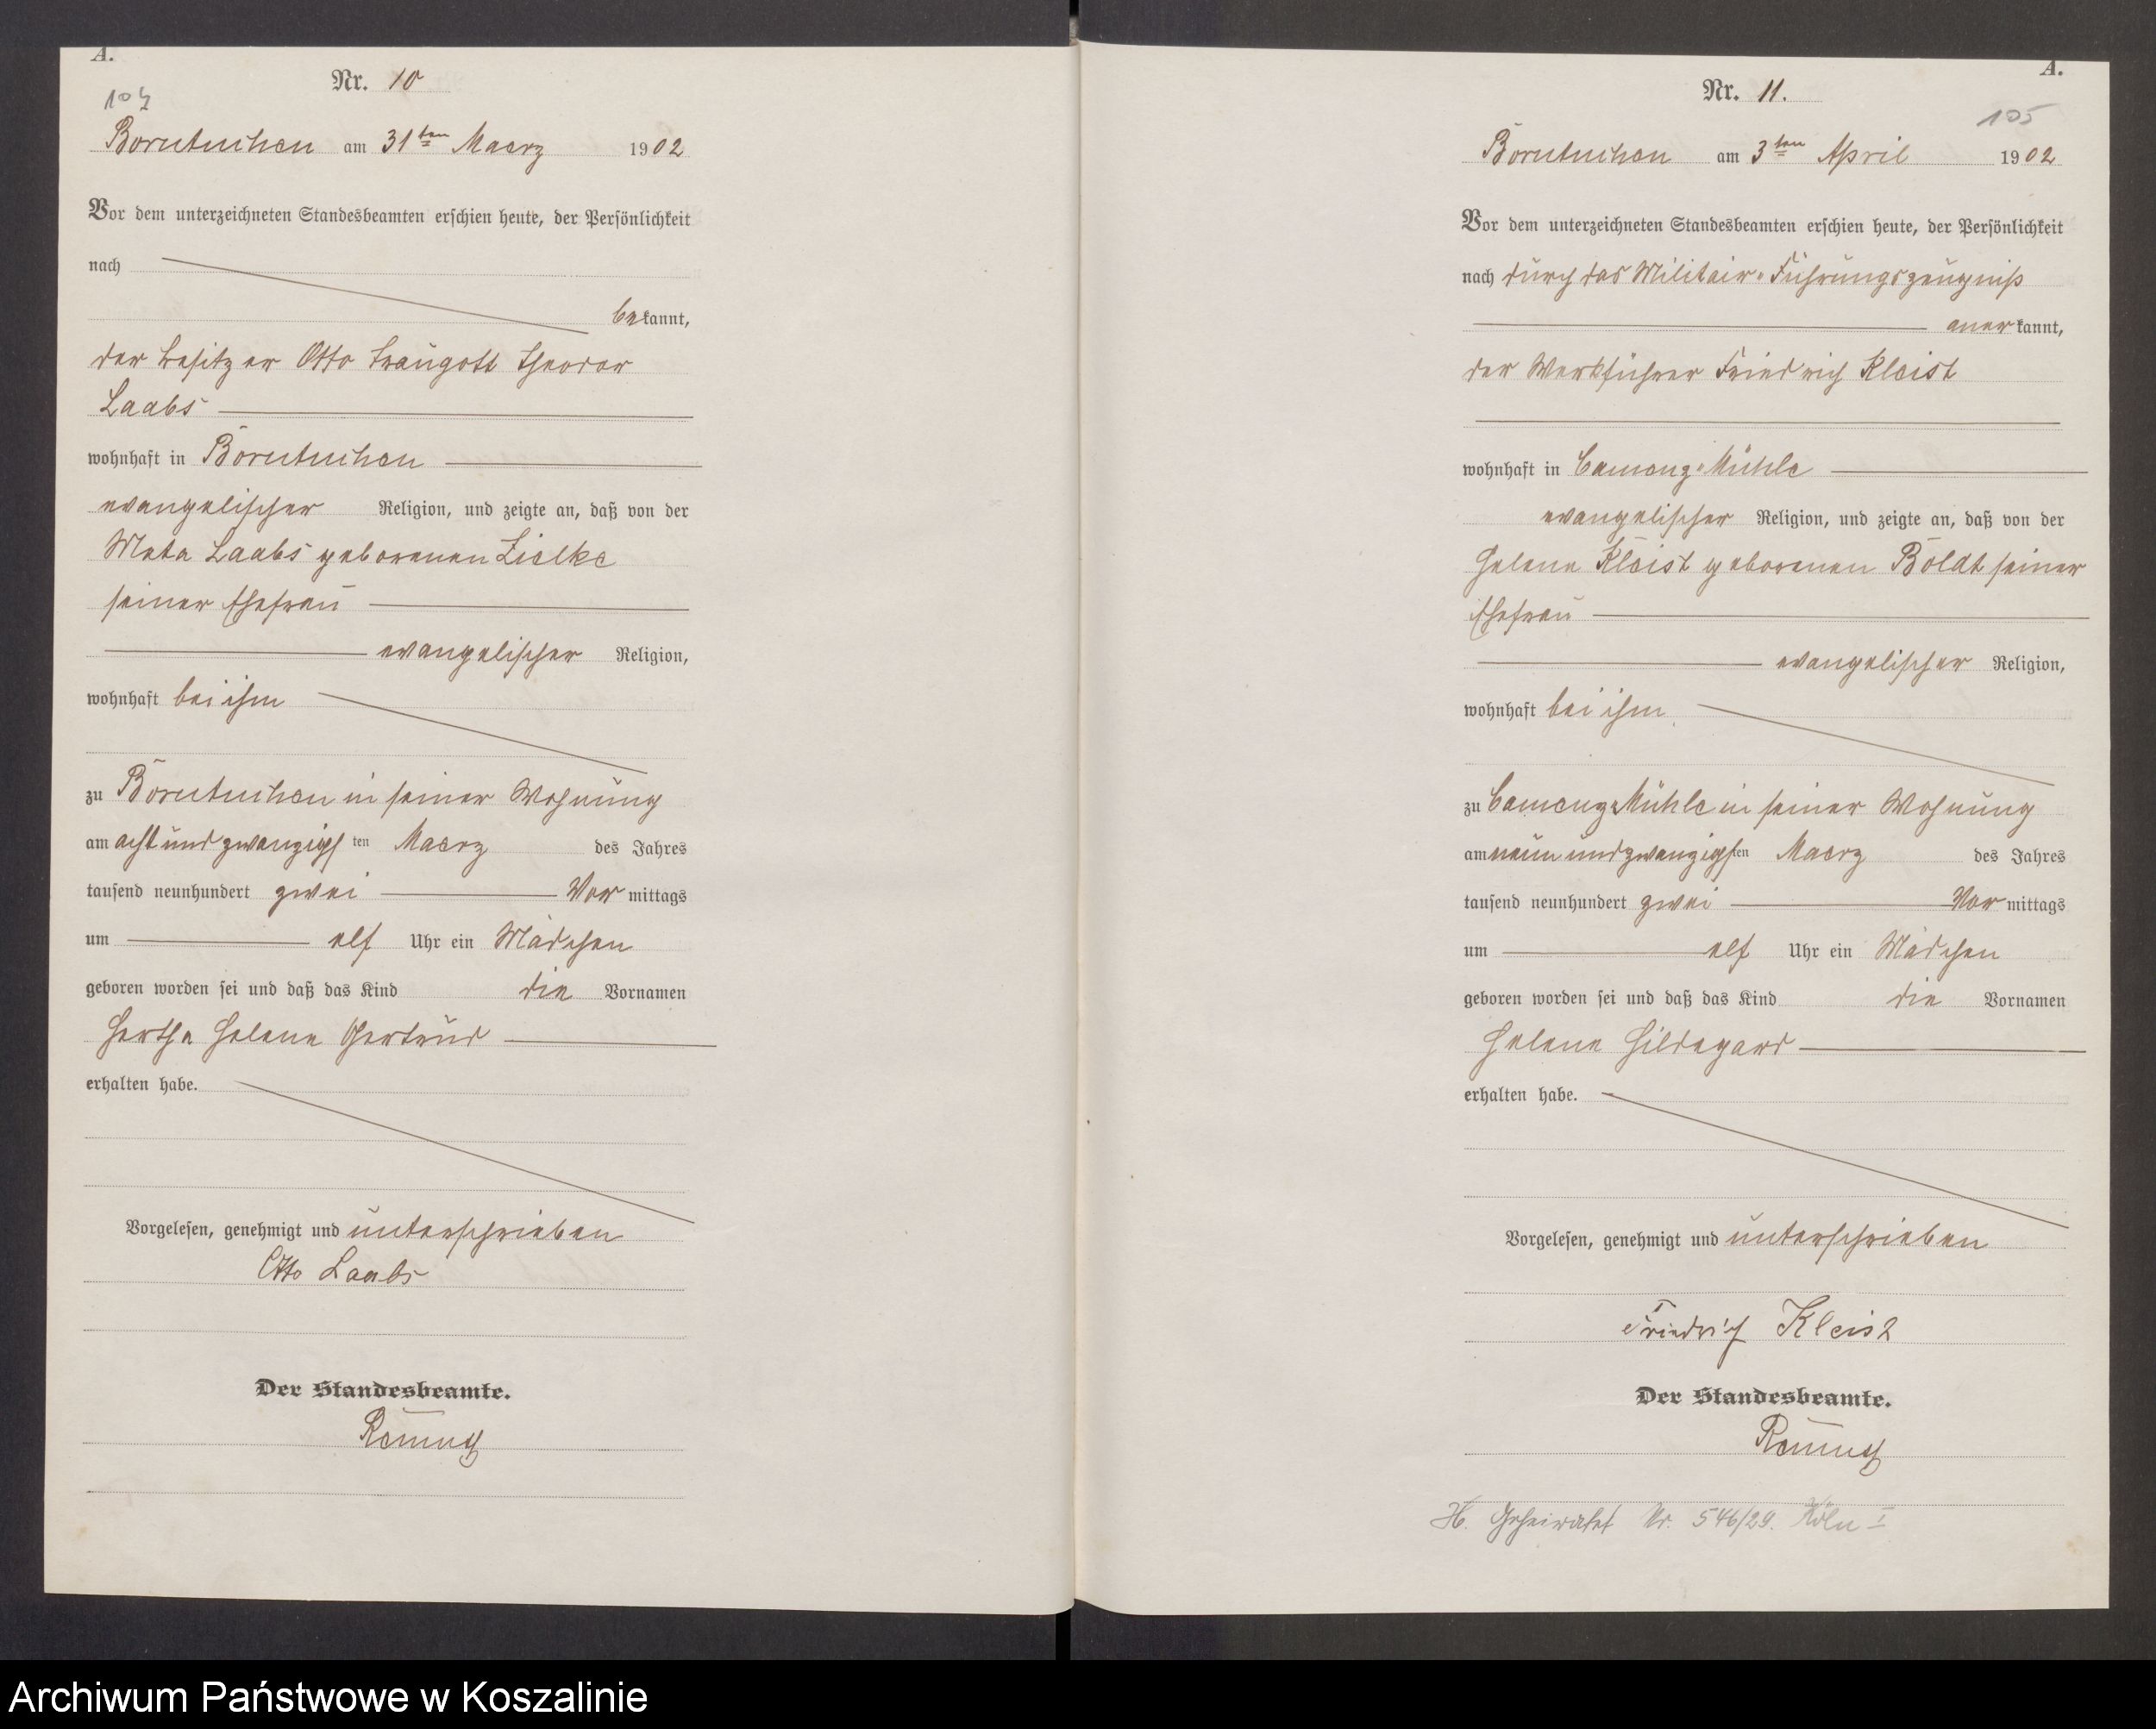 A.
Nr. 10
104
Borntuchen am 31ten Maerz 1902
Vor dem unterzeichneten Standesbeamten erschien heute, der Persönlichkeit
nach
bekannt,
der Besitzer Otto Traugott Theodor
Laabs
wohnhaft in Borntuchen
evangelischer Religion, und zeigte an, daß von der
Meta Laabs geborenen Zielke
seiner Ehefrau
evangelischer Religion,
wohnhaft bei ihm
zu Borntuchen in seiner Wohnung
am acht und zwanzigsten Maerz des Jahres
tausend neunhundert zwei Vormittags
um elf Uhr ein Mädchen
geboren worden sei und daß das Kind die Vornamen
Hertha Helene Gertrud
erhalten habe.
Vorgelesen, genehmigt und unterschrieben
Otto Laabs
Der Standesbeamte.
A.
Nr. 11.
105
Borntuchen am 3ten April 1902
Vor dem unterzeichneten Standesbeamten erschien heute, der Persönlichkeit
nach durch das Militair-Führungszeugniß
anerkannt,
der Werkführer Friedrich Kleist
wohnhaft in Camenz-Mühle
evangelischer Religion, und zeigte an, daß von der
Helene Kleist geborenen Boldt seiner
Ehefrau
evangelischer Religion,
wohnhaft bei ihm
zu Camenz-Mühle in seiner Wohnung
am neun und zwanzigsten Maerz des Jahres
tausend neunhundert zwei Vormittags
um elf Uhr ein Mädchen
geboren worden sei und daß das Kind die Vornamen
Helene Hildegard
erhalten habe.
Vorgelesen, genehmigt und unterschrieben
Friedrich Kleist
Der Standesbeamte.
H. Geheiratet Nr. 546/29. Köln I
Archiwum Państwowe w Koszalinie